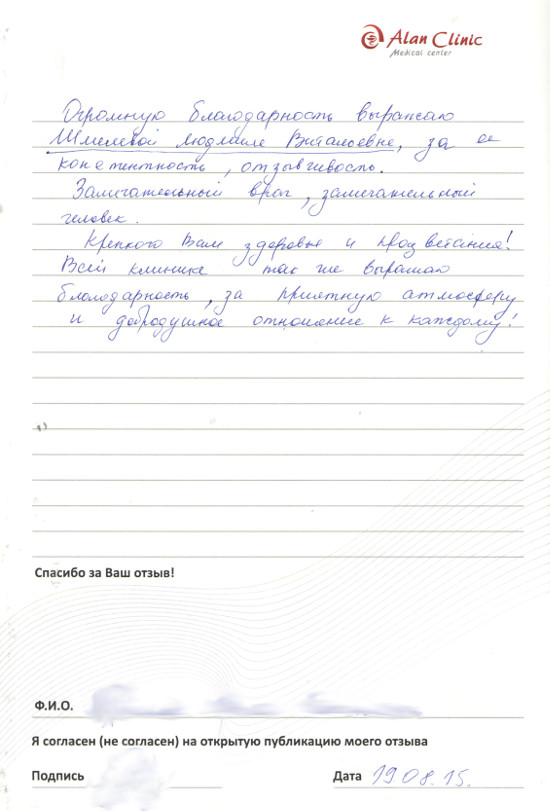 Alan Clinic
Medical center
Огромную благодарность выражаю
Шмелевой Людмиле Витальевне, за ее
компетентность, отзывчивость.
Замечательный врач, замечательный
человек.
Крепкого Вам здоровья и процветания!
Всей клинике так же выражаю
благодарность, за приятную атмосферу
и добродушное отношение к каждому!
Спасибо за Ваш отзыв!
Ф.И.О.
Я согласен (не согласен) на открытую публикацию моего отзыва
Подпись Дата 19.08.15.